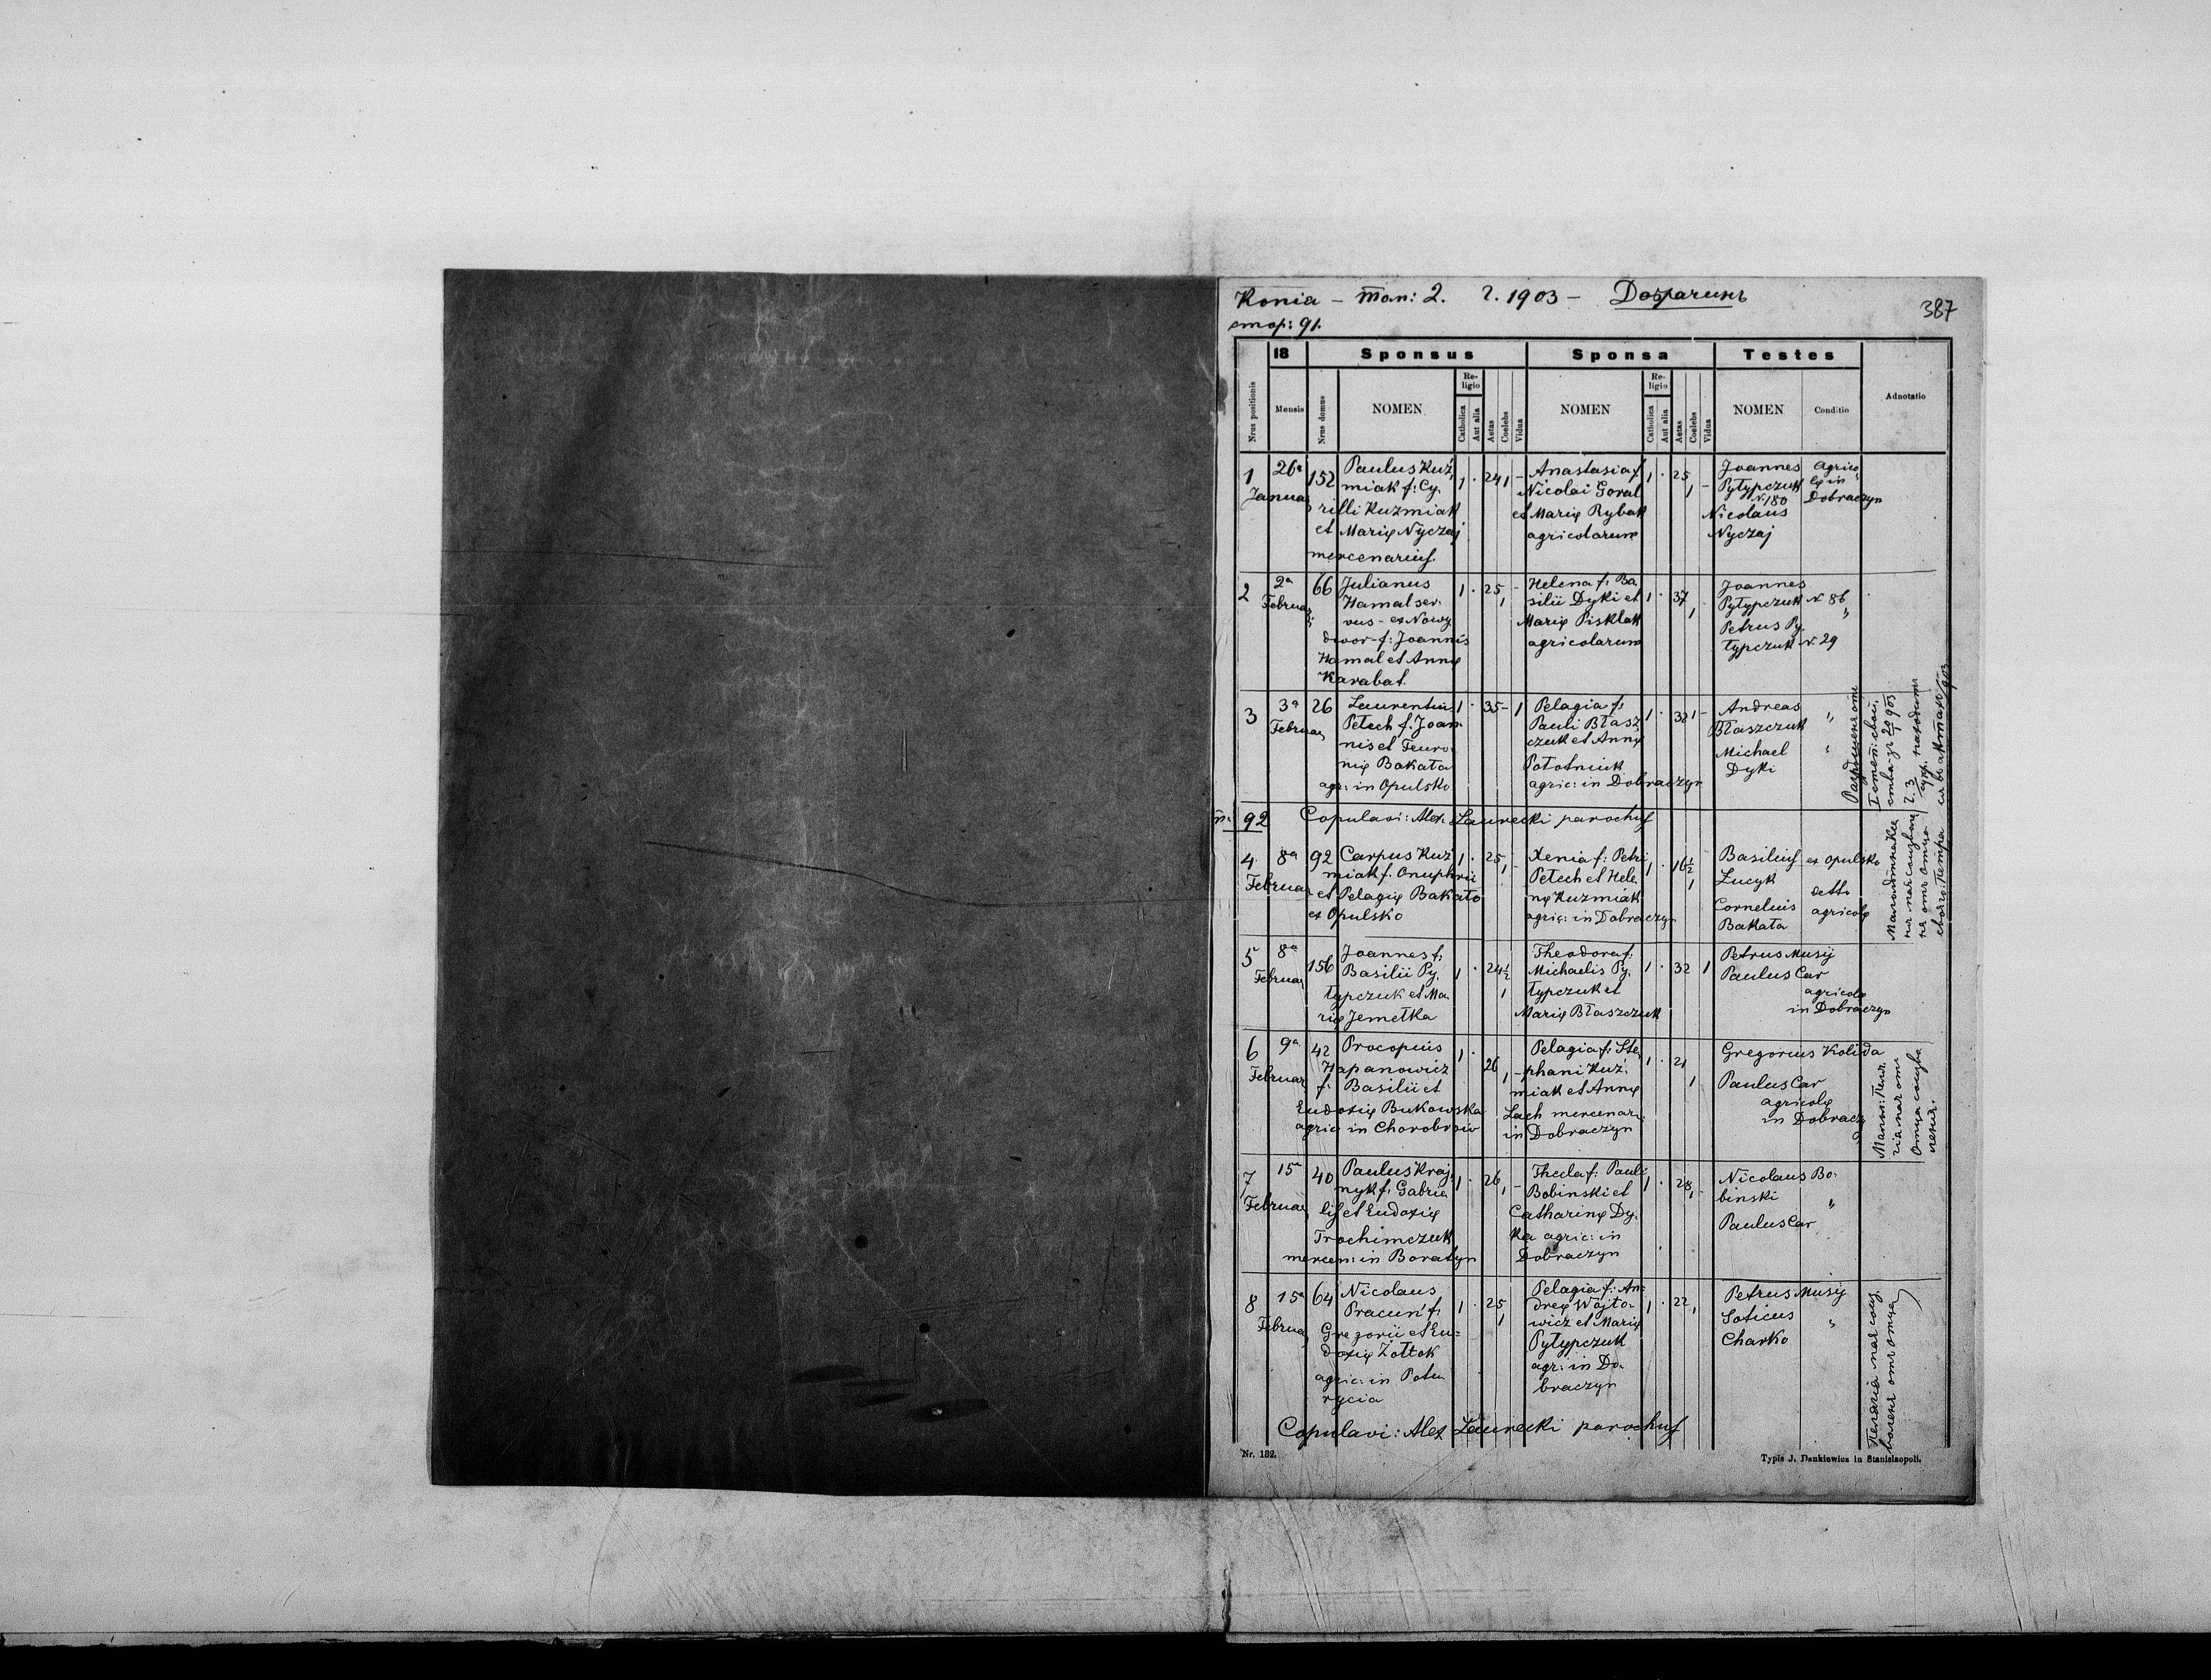 Копія – том: 2. Р. 1903 – Добрачинъ
стор: 91.
387
18 Sponsus Sponsa Testes
Nrus positionis Mensis Nrus domus NOMEN Religio Catholica Aut alia Aetas Coelebs Vidua NOMEN Religio Catholica Aut alia Aetas Coelebs Vidua NOMEN Conditio Adnotatio
1 26a Januar 152
Paulus Kuź
miak f: Cy
rilli Kuźmiak
et Marię Nyczaj
mercenarius.
1 · 24 1 -
Anastasia f.
Nicolai Goral
et Marię Rybak
agricolarum
1 · 25 1 -
Joannes agrico
Pyłypczuk lę in
N. 180 Dobraczyn
Nicolaus
Nyczaj
2 2a Februar 66
Julianus
Hamal ser
vus - ex Nowy
dwor - f: Joannis
Hamal et Annę
Karabat.
1 · 25 1 -
Helena f: Ba
silii Dyki et
Marię Pisklak
agricolarum
1 · 37 1 -
Joannes
Pyłypczuk N. 86
Petrus Py "
łypczuk N. 29
3 3a Februar 26
Laurentius
Petech f: Joan
nis et Feuro
nię Bakata
agr: in Opulsko
1 · 35 - 1
Pelagia f:
Pauli Błasz
czuk et Annę
Połotniuk
agric: in Dobraczyn
1 · 32 1 -
Andreas
Błaszczuk "
Michael "
Dyki
92 Copulavi: Alex. Laurecki parochus
4 8a Februar 92
Carpus Kuź
miak f. Onuphrii
et Pelagię Bakato
ex Opulsko
1 · 25 1 -
Xenia f: Petri
Petech et Hele
nę Kuźmiak
agric: in Dobraczyn
1 · 16½ 1
Basilius ex Opulsko
Łucyk detto
Cornelius agricolę
Bakata
5 8a Februar 156
Joannes f:
Basilii Py
łypczuk et Ma
rię Jemełka
1 · 24½ 1
Theodora f:
Michaelis Py
łypczuk et
Marię Błaszczuk
1 · 32 1
Petrus Musij
Paulus Car
agricolę
in Dobraczyn
6 9a Februar 42
Procopius
Hapanowicz
f: Basilii et
Eudoxię Bukowska
agric in Chorobrow
1 · 26 1 -
Pelagia f: Ste
phani Kuź
miak et Annę
Lach mercenar
in Dobraczyn
1 · 21 1
Gregorius Kolida
Paulus Car
agricolę
in Dobracz
7 15a Februar 40
Paulus Kraj
nyk f: Gabrie
lis et Eudoxię
Trochimczuk
mercen: in Boratyn
1 · 26 1 -
Thecla f: Pauli
Bobinski et
Catharinę Dy
ka agric: in
Dobraczyn
1 · 28 1 -
Nicolaus Bo
binski "
Paulus Car
8 15a Februar 64
Nicolaus
Pracuń f:
Gregorii et Eu=
doxię Żołtok
agric: in Potu
rycia
1 · 25 1
Pelagia f: An
dreę Wojto
wicz et Marię
Pyłypczuk
agr: in Do
braczyn
1 · 22 1
Petrus Musij
Soticus "
Charko
Copulavi: Alex Laurecki parochus
Nr. 132. Typis J. Dankiewicz in Stanislaopoli.